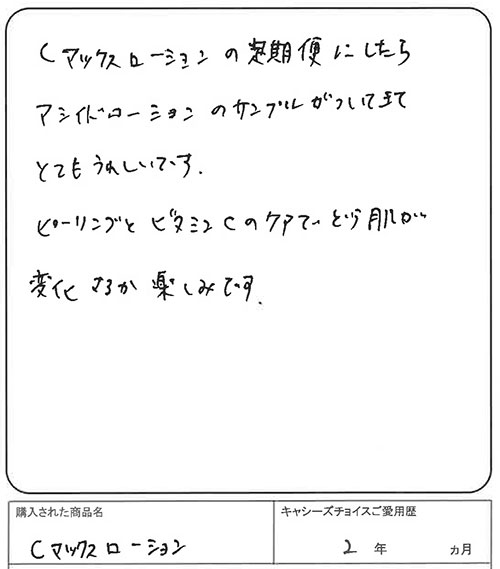 Cマックスローションの定期便にしたら
アシイドローションのサンプルがついて来て
とてもうれしいです.
ピーリングとビタミンCのケアで、どう肌が
変化するか楽しみです.
購入された商品名
キャシーズチョイスご愛用歴
Cマックスローション
2 年 カ月